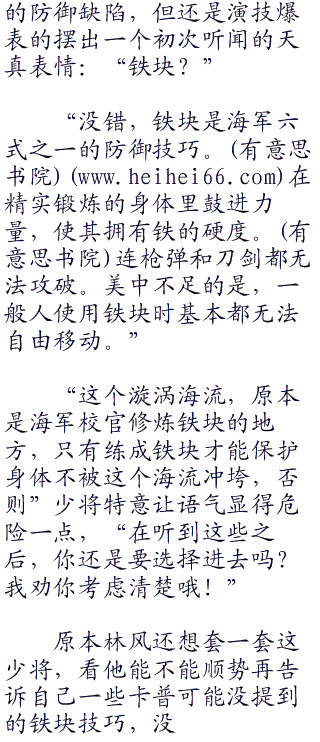 的防御缺陷，但还是演技爆
表的摆出一个初次听闻的天
真表情：“铁块？”
“没错，铁块是海军六
式之一的防御技巧。(有意思
书院)(www.heihei66.com)在
精实锻炼的身体里鼓进力
量，使其拥有铁的硬度。(有
意思书院)连枪弹和刀剑都无
法攻破。美中不足的是，一
般人使用铁块时基本都无法
自由移动。”
“这个漩涡海流，原本
是海军校官修炼铁块的地
方，只有练成铁块才能保护
身体不被这个海流冲垮，否
则”少将特意让语气显得危
险一点，“在听到这些之
后，你还是要选择进去吗？
我劝你考虑清楚哦！”
原本林风还想套一套这
少将，看他能不能顺势再告
诉自己一些卡普可能没提到
的铁块技巧，没